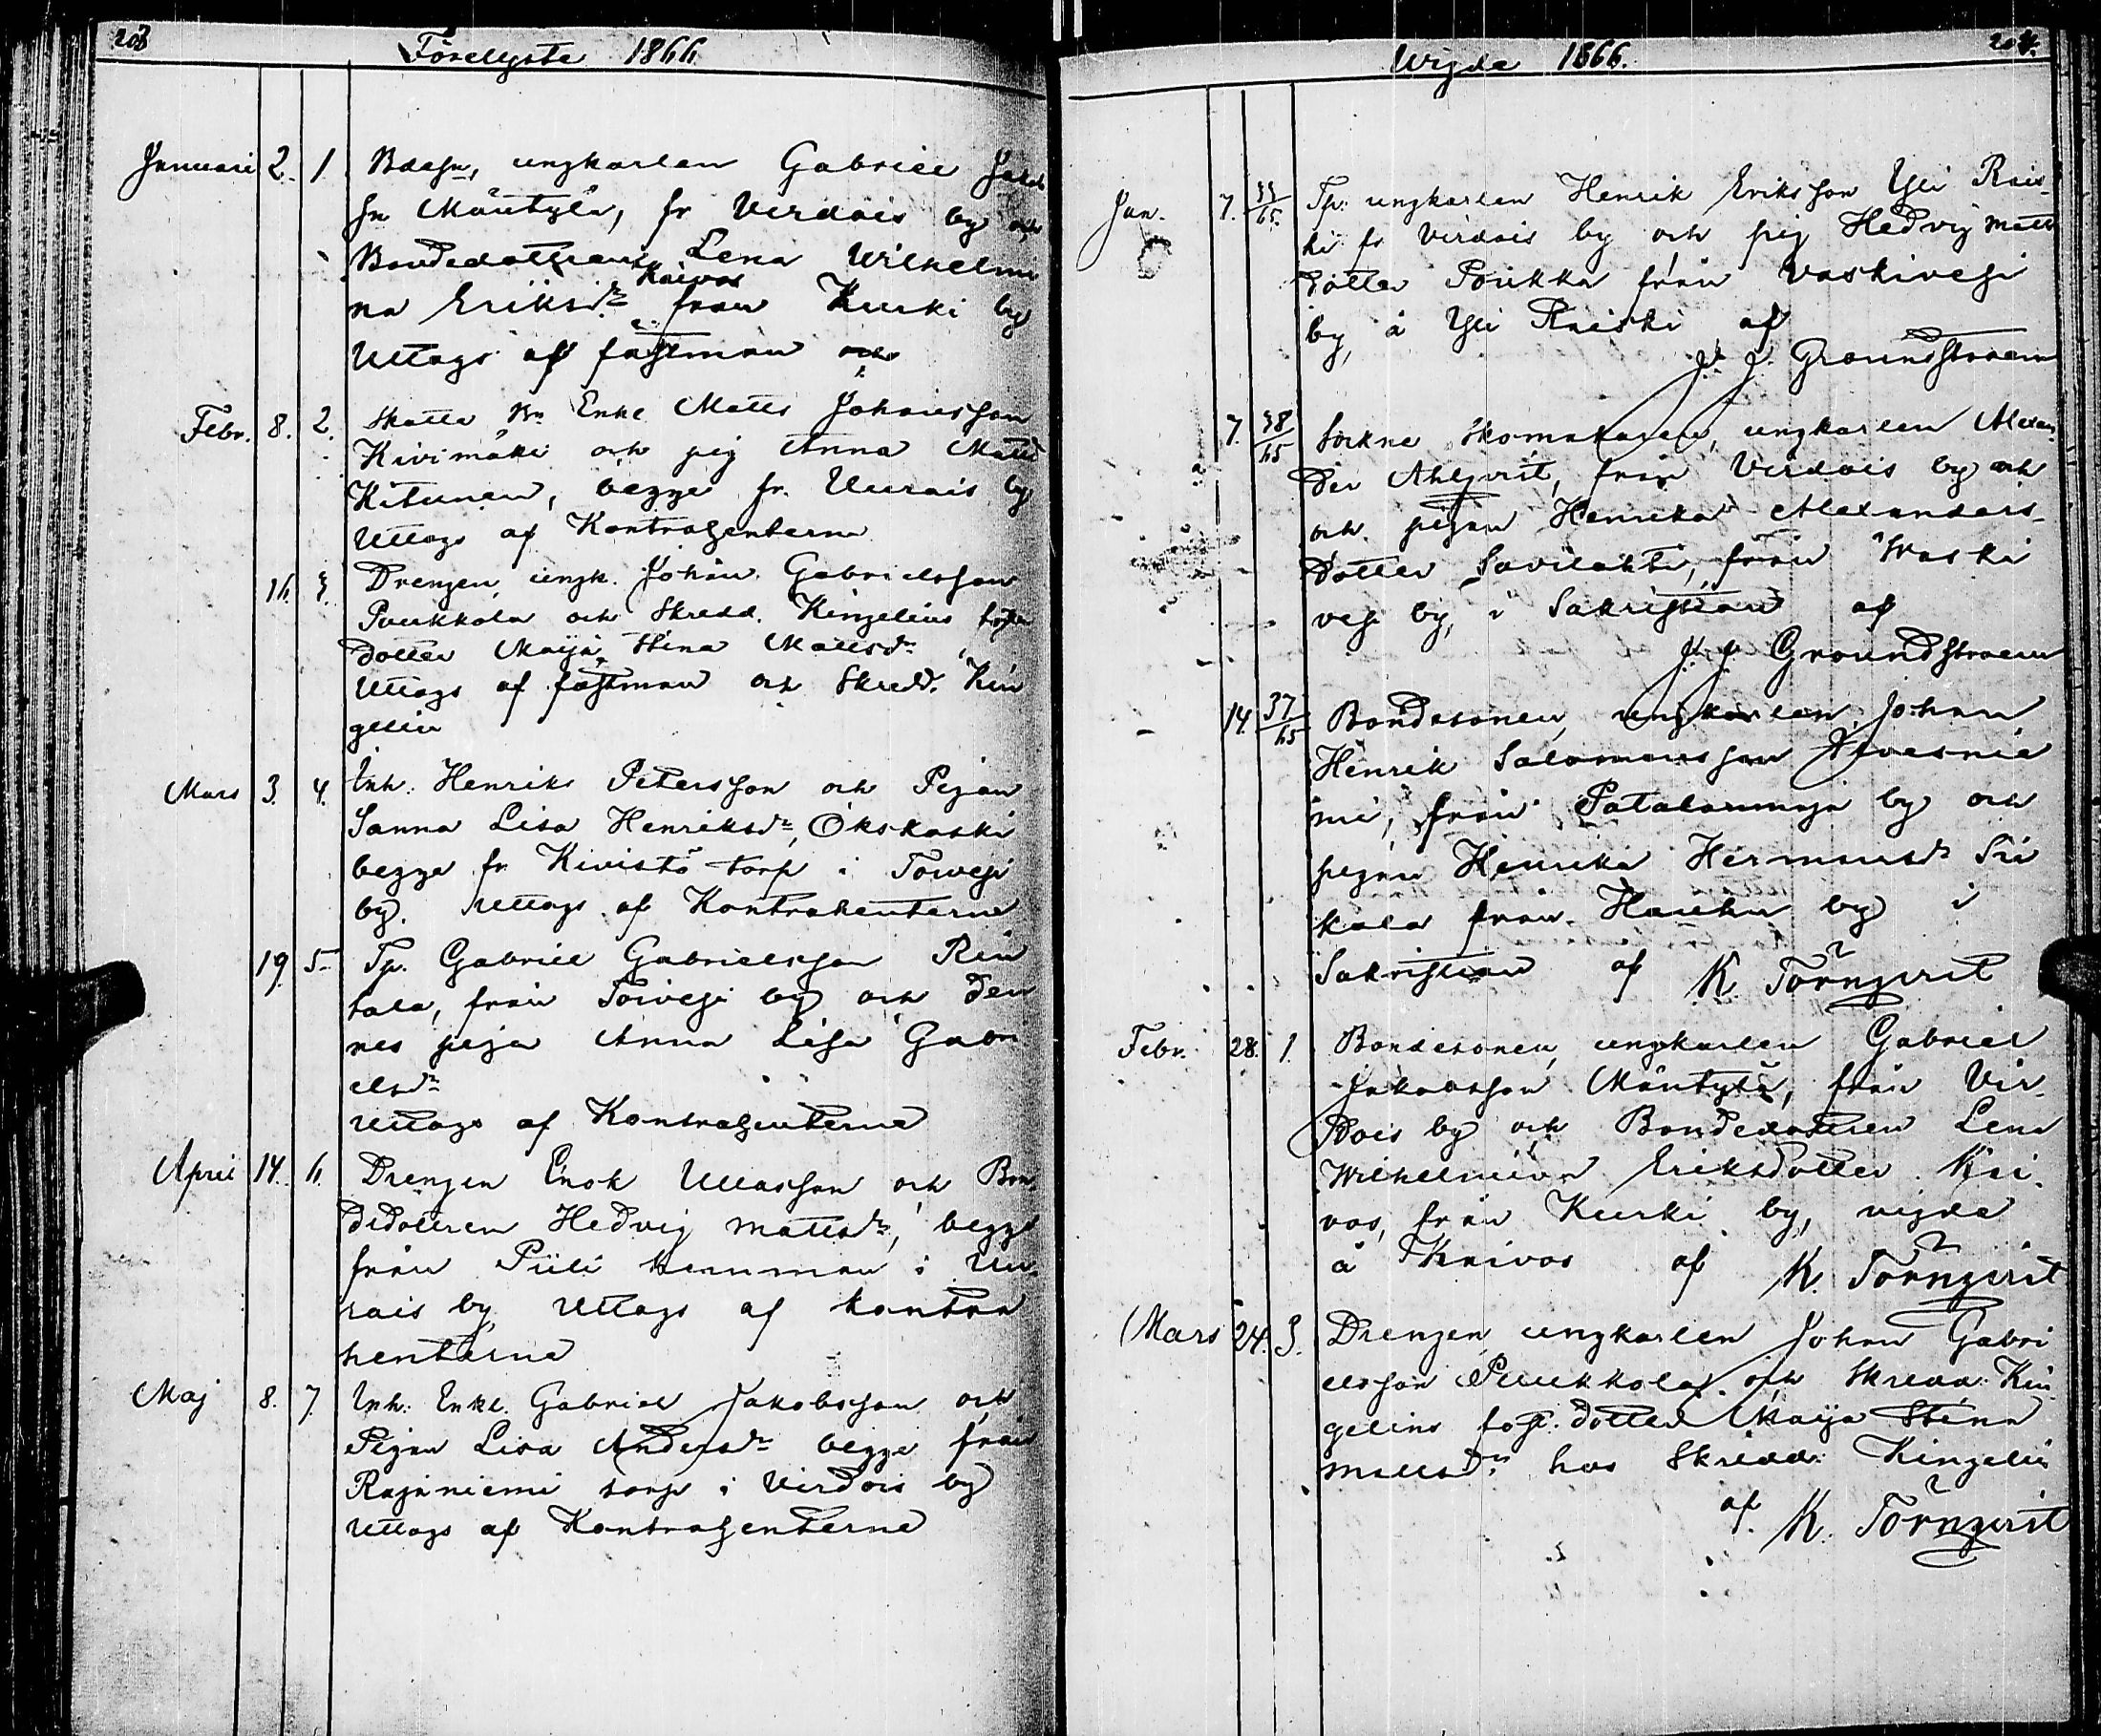 203
Förelyste 1866
Januari 2. 1. Bdesn, ungkarlen Gabriel Jakobs
sn Mäntylä, fr Virdois by och
Bondedottren Lena Wilhelmi
Kaivos
na Eriksdr från Kurki by
Uttags af fästman
Febr. 8. 2. Skatte Bn Enkl Matts Johansson
Kivimäki och pig Anna Mattsd
Kitunen, begge fr. Uurais by
Uttags af Kontrahenterne
16. 3. Drengen, ungk. Johan Gabrielsson
Puukkola och Skredd. Kingelins foster
dotter Maija Stina Mattsdr
Uttags af fästman och Skredd. Kin
gelin
Mars 3. 4. Inh. Henrik Petersson och Pigan
Sanna Lisa Henriksdr, Okskaski
begge fr Kivistö torp i Toivesi
by. Uttags af Kontrahenterne
19. 5. Tp. Gabriel Gabrielsson Rin
tala, från Toivesi by och den
nes piga Anna Lisa Gabri
elsdr
Uttags af Kontrahenterne
April 14. 6. Drengen Enok Ullasson och Bon
dedottren Hedvig Mattsdr, begge
från Piili hemman i Uu
rais by, Uttags af kontra
henterne
Maj 8. 7. Inh. Enkl. Gabriel Jakobsson och
Pigan Lisa Andersdr begge från
Rajaniemi torp i Virdois by
Uttags af Kontrahenterne
204.
Wigde 1866.
Jan. 7. 35/65. Tp. ungkarlen Henrik Eriksson Yli Rais-
ki fr Virdois by och pig Hedvig Matts
dotter Poukka från Vaskivesi
by, å Yli Raiski af
J. J. Groundstroem
7. 38/65 Sockne Skomakaren, ungkarlen Alexan
der Ahlqvist, från Virdois by och
och pigan Henrika Alexanders-
dotter Savilahti, från Waski
vesi by, i Sakristian af
J. J. Groundstroem
14. 37/65 Bondesonen, ungkarlen Johan
Henrik Salomonsson
mi, från by och
pigan Henrika Hermansdr Sii
kala från Hauhu by i
Sakristian af K. Törnqvist
Febr. 28. 1. Bondesonen, ungkarlen Gabriel
Jakobsson Mäntylä, från Vir-
dois by och Bondedottren Lena
Wilhelmina Eriksdotter Kai-
vos, från Kurki by, vigde
å Kaivos af K. Törnqvist
Mars 24. 3. Drengen ungkarlen Johan Gabri
elsson Puukkola och Skredd. Kin
gelins fost. dotter Maija Stina
Mattsdr hos Skredd. Kingelin
af K. Törnqvist